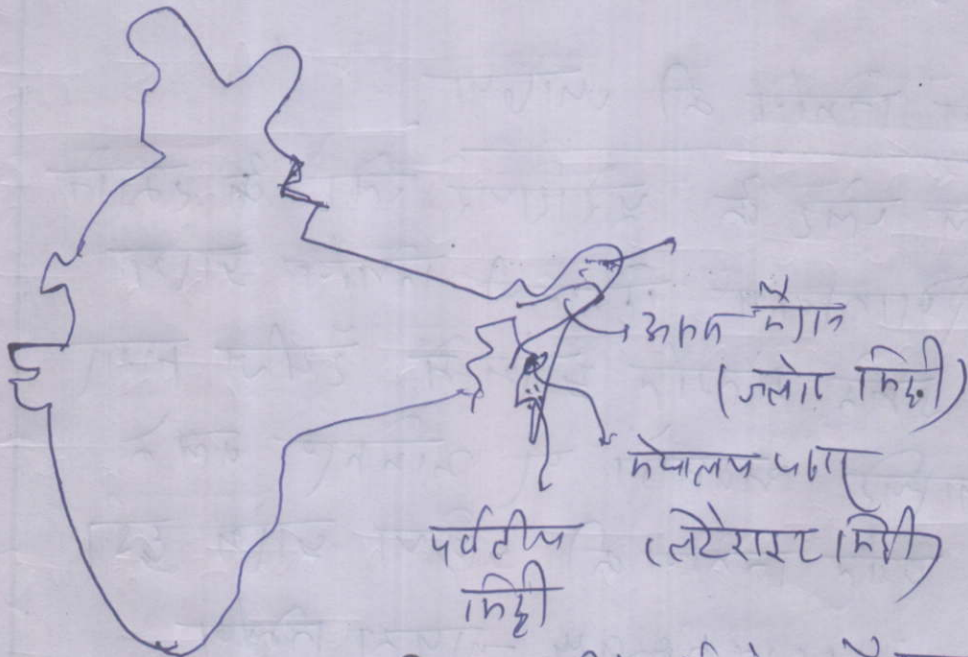 असम मैदान
(जलोढ़ मिट्टी)
मेघालय पठार
(लेटेराइट मिट्टी)
पर्वतीय
मिट्टी